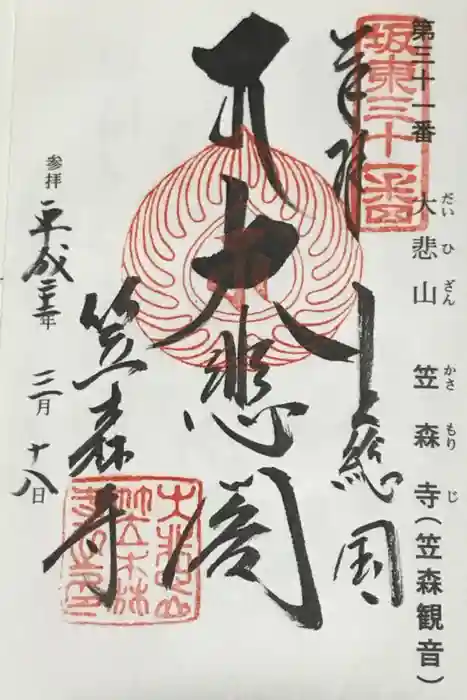 第三十一番 大悲山 笠森寺(笠森観音)
だい ひ ざん かさ もり じ
坂東三十一番
奉拝 上總国
大悲閣
笠森寺
参拝 平成 年 三月 十八日